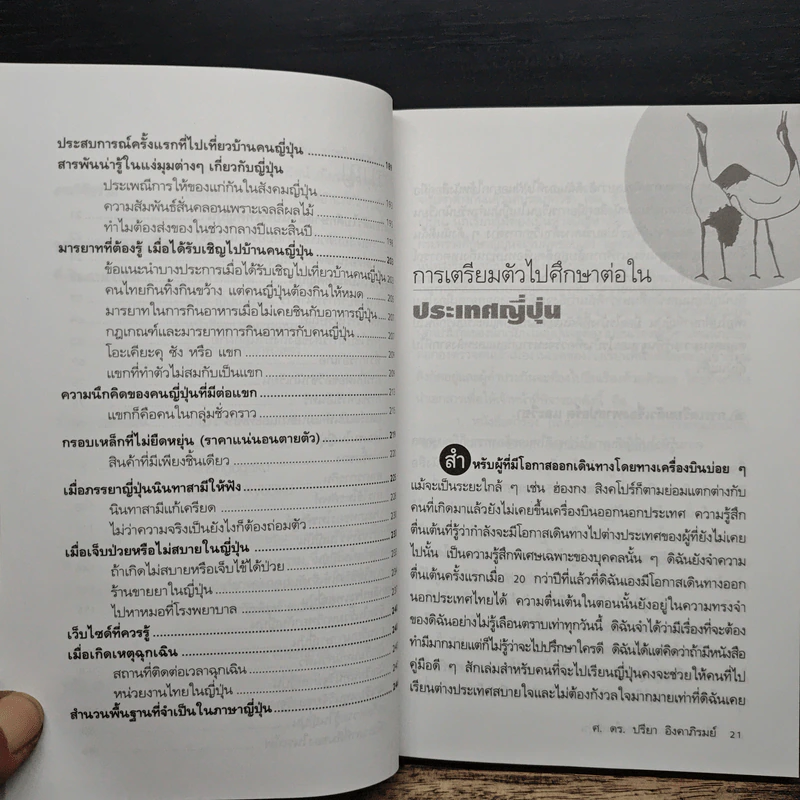 ประสบการณ์ครั้งแรกที่ไปเที่ยวบ้านคนญี่ปุ่น
สารพันน่ารู้ในแง่มุมต่างๆ เกี่ยวกับญี่ปุ่น
ประเพณีการให้ของแก่กันในสังคมญี่ปุ่น
ความสัมพันธ์สั่นคลอนเพราะเจลลี่ผลไม้
ทำไมต้องส่งของในช่วงกลางปีและสิ้นปี
มารยาทที่ต้องรู้ เมื่อได้รับเชิญไปบ้านคนญี่ปุ่น
ข้อแนะนำบางประการเมื่อได้รับเชิญไปเที่ยวบ้านคนญี่ปุ่น
คนไทยกินทิ้งกินขว้าง แต่คนญี่ปุ่นต้องกินให้หมด
มารยาทในการกินอาหารเมื่อไม่เคยชินกับอาหารญี่ปุ่น
กฎเกณฑ์และมารยาทการกินอาหารกับคนญี่ปุ่น
โอะเคียะคุ ซัง หรือ แขก
แขกที่ทำตัวไม่สมกับเป็นแขก
ความนึกคิดของคนญี่ปุ่นที่มีต่อแขก
แขกก็คือคนในกลุ่มชั่วคราว
กรอบเหล็กที่ไม่ยืดหยุ่น (ราคาแน่นอนตายตัว)
สินค้าที่มีเพียงชิ้นเดียว
เมื่อภรรยาญี่ปุ่นนินทาสามีให้ฟัง
นินทาสามีแก้เครียด
ไม่ว่าความจริงเป็นยังไงก็ต้องถ่อมตัว
เมื่อเจ็บป่วยหรือไม่สบายในญี่ปุ่น
ถ้าเกิดไม่สบายหรือเจ็บไข้ได้ป่วย
ร้านขายยาในญี่ปุ่น
ไปหาหมอที่โรงพยาบาล
เว็บไซต์ที่ควรรู้
เมื่อเกิดเหตุฉุกเฉิน
สถานที่ติดต่อเวลาฉุกเฉิน
หน่วยงานไทยในญี่ปุ่น
สำนวนพื้นฐานที่จำเป็นในภาษาญี่ปุ่น
การเตรียมตัวไปศึกษาต่อใน
ประเทศญี่ปุ่น
สำหรับผู้ที่มีโอกาสออกเดินทางโดยทางเครื่องบินบ่อย ๆ
แม้จะเป็นระยะใกล้ ๆ เช่น ฮ่องกง สิงคโปร์ก็ตามย่อมแตกต่างกับ
คนที่เกิดมาแล้วยังไม่เคยขึ้นเครื่องบินออกนอกประเทศ ความรู้สึก
ตื่นเต้นที่รู้ว่ากำลังจะมีโอกาสเดินทางไปต่างประเทศของผู้ที่ยังไม่เคย
ไปนั้น เป็นความรู้สึกพิเศษเฉพาะของบุคคลนั้น ๆ ดิฉันยังจำความ
ตื่นเต้นครั้งแรกเมื่อ 20 กว่าปีที่แล้วที่ดิฉันเองมีโอกาสเดินทางออก
นอกประเทศไทยได้ ความตื่นเต้นในตอนนั้นยังอยู่ในความทรงจำ
ของดิฉันอย่างไม่รู้เลือนตราบเท่าทุกวันนี้ ดิฉันจำได้ว่ามีเรื่องที่จะต้อง
ทำมีมากมายแต่ก็ไม่รู้ว่าจะไปปรึกษาใครดี ดิฉันได้แต่คิดว่าถ้ามีหนังสือ
คู่มือดี ๆ สักเล่มสำหรับคนที่จะไปเรียนญี่ปุ่นคงจะช่วยให้คนที่ไป
เรียนต่างประเทศสบายใจและไม่ต้องกังวลใจมากมายเท่าที่ดิฉันเคย
ศ. ดร. ปรียา อิงคาภิรมย์ 21